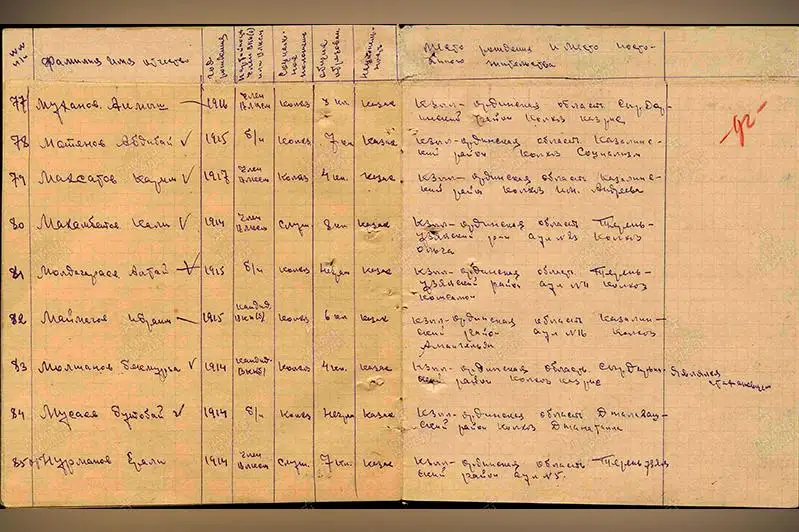 №№ п/п Фамилия имя отчество Год рождения Партийность Член ВКП(б) или ВЛКСМ Социальное положение Общее образован. Националь-ность Место рождения и место посто-
янного жительства
77 Муканов Акмыш 1916 Член ВЛКСМ колхз 3 кл. казак Кзыл-ординская область Сыр-Дар-
инский район колхоз
-92-
78 Матенов Абдибай 1915 б/п колхоз. 7 кл казак Кзыл-ординская область Казалинс-
кий район колхоз Социализм
79 Максатов Карим 1917 Член ВЛКСМ колхз 4 кл. казак Кзыл-ординская область Казалинс-
кий район колхоз им. Андреева
80 Макамбетов Кали 1914 Член ВЛКСМ Служ. 8 кл казак Кзыл-ординская область Терень-
Узякский рай аул №23 колхоз
81 Молдагараев 1915 б/п колхз казак Кзыл-ординская област. Терень-
узякский район аул №4 колхоз
82 Маймегов Ибраим 1915 Кандид. ВКП(б) колхз 6 кл казак Кзыл-ординская область Казалин-
ский район аул №16 колхоз
Амангельды
83 Молшанов Бекмурза 1914 Кандид. ВКП(б) колхз 4 кл. казак Кзыл-ординская область Сыр-Дарьин-
ский район колхоз
84 Мусаев Бутабай 1914 б/п колхз казак Кзыл-ординская область Джалагаш-
ский район колхоз
85 Нурманов Ерали 1914 Член ВЛКСМ Служ. 7 кл. казак Кзыл-ординская область Терень-узяк-
ский район аул №5.